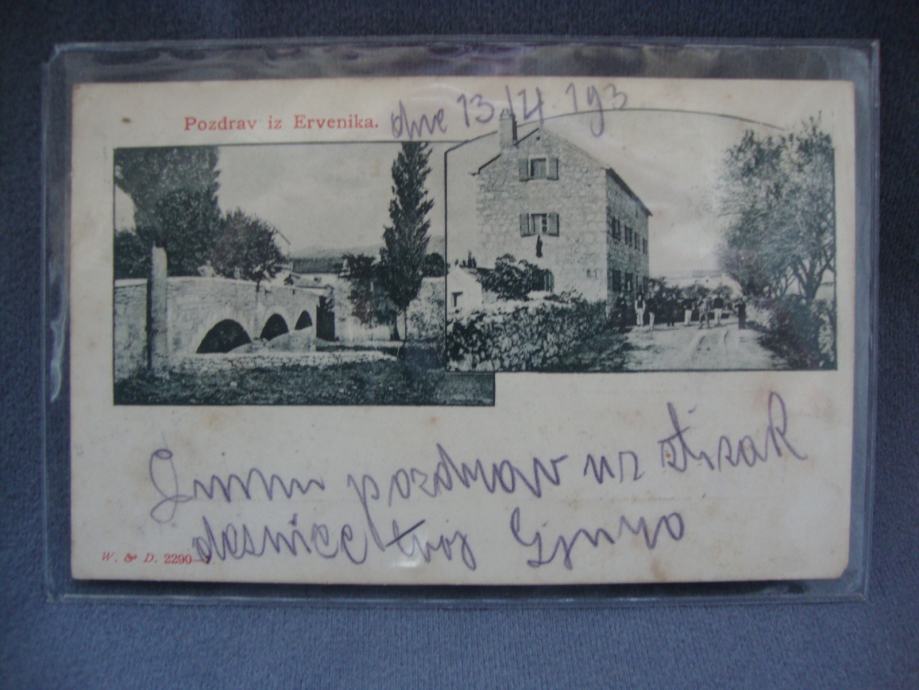 Pozdrav iz Ervenika.
dne 13/4 193
pozdrav uz stisak
desnice tvoj
W. & D. 2290